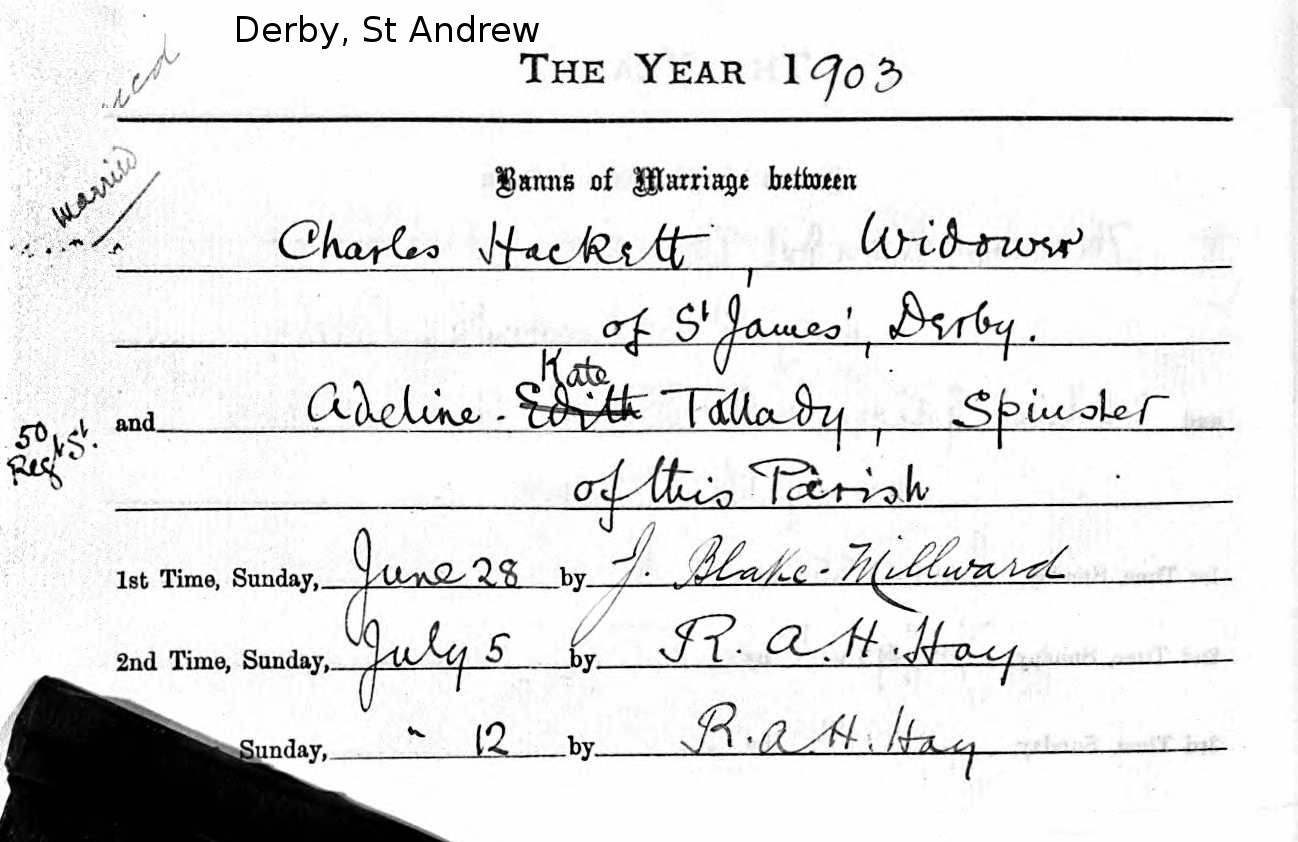 Derby, St Andrew
THE YEAR 1903
married
Banns of Marriage between
Charles Hackett, Widower
of St James', Derby.
Kate
and Adeline - Edith Tallady, Spinster
50
Regt St.
of this Parish
1st Time, Sunday, June 28 by J. Blake-Millward
2nd Time, Sunday, July 5 by R. A. H. Hay
Sunday, " 12 by R. A. H. Hay